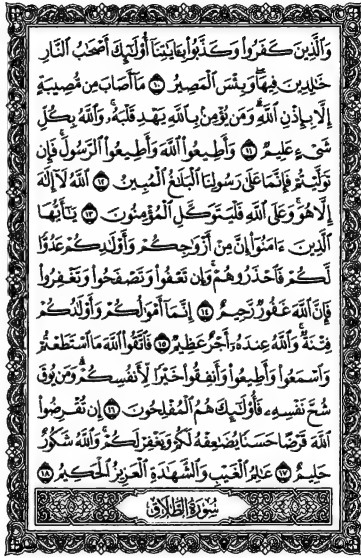 وَالَّذِينَ كَفَرُوا وَكَذَّبُوا بِآيَاتِنَا أُولَٰئِكَ أَصْحَابُ النَّارِ
خَالِدِينَ فِيهَا وَبِئْسَ الْمَصِيرُ ١٠ مَا أَصَابَ مِن مُّصِيبَةٍ
إِلَّا بِإِذْنِ اللَّهِ وَمَن يُؤْمِن بِاللَّهِ يَهْدِ قَلْبَهُ وَاللَّهُ بِكُلِّ
شَيْءٍ عَلِيمٌ ١١ وَأَطِيعُوا اللَّهَ وَأَطِيعُوا الرَّسُولَ فَإِن
تَوَلَّيْتُمْ فَإِنَّمَا عَلَىٰ رَسُولِنَا الْبَلَاغُ الْمُبِينُ ١٢ اللَّهُ لَا إِلَٰهَ
إِلَّا هُوَ وَعَلَى اللَّهِ فَلْيَتَوَكَّلِ الْمُؤْمِنُونَ ١٣ يَا أَيُّهَا
الَّذِينَ آمَنُوا إِنَّ مِنْ أَزْوَاجِكُمْ وَأَوْلَادِكُمْ عَدُوًّا
لَّكُمْ فَاحْذَرُوهُمْ وَإِن تَعْفُوا وَتَصْفَحُوا وَتَغْفِرُوا
فَإِنَّ اللَّهَ غَفُورٌ رَّحِيمٌ ١٤ إِنَّمَا أَمْوَالُكُمْ وَأَوْلَادُكُمْ
فِتْنَةٌ وَاللَّهُ عِندَهُ أَجْرٌ عَظِيمٌ ١٥ فَاتَّقُوا اللَّهَ مَا اسْتَطَعْتُمْ
وَاسْمَعُوا وَأَطِيعُوا وَأَنفِقُوا خَيْرًا لِّأَنفُسِكُمْ وَمَن يُوقَ
شُحَّ نَفْسِهِ فَأُولَٰئِكَ هُمُ الْمُفْلِحُونَ ١٦ إِن تُقْرِضُوا
اللَّهَ قَرْضًا حَسَنًا يُضَاعِفْهُ لَكُمْ وَيَغْفِرْ لَكُمْ وَاللَّهُ شَكُورٌ
حَلِيمٌ ١٧ عَالِمُ الْغَيْبِ وَالشَّهَادَةِ الْعَزِيزُ الْحَكِيمُ ١٨
سُورَةُ الطَّلَاقِ